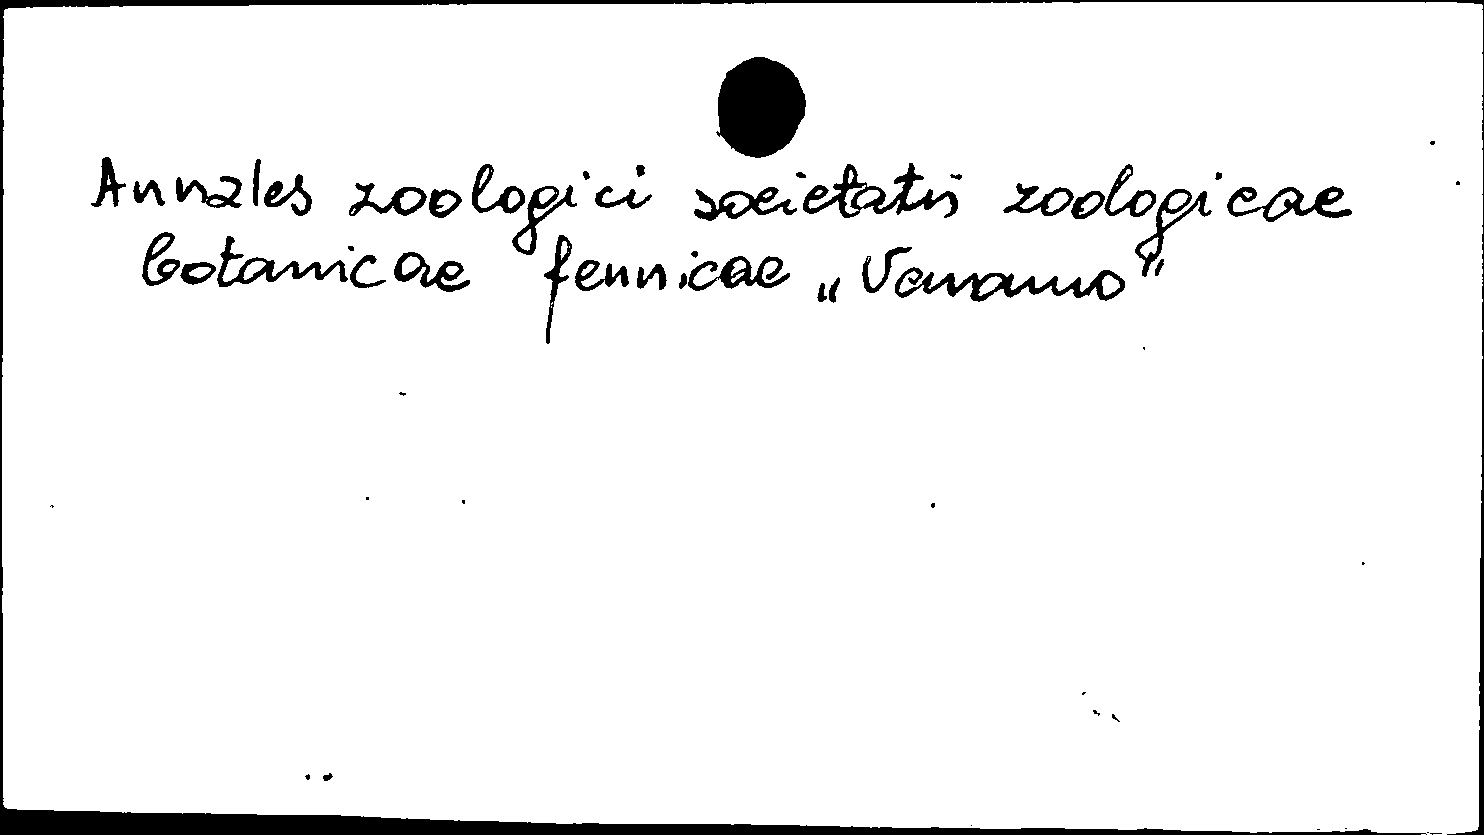 Annales zoologici societatis zoologicae
botanicae fennicae „Vanamo"